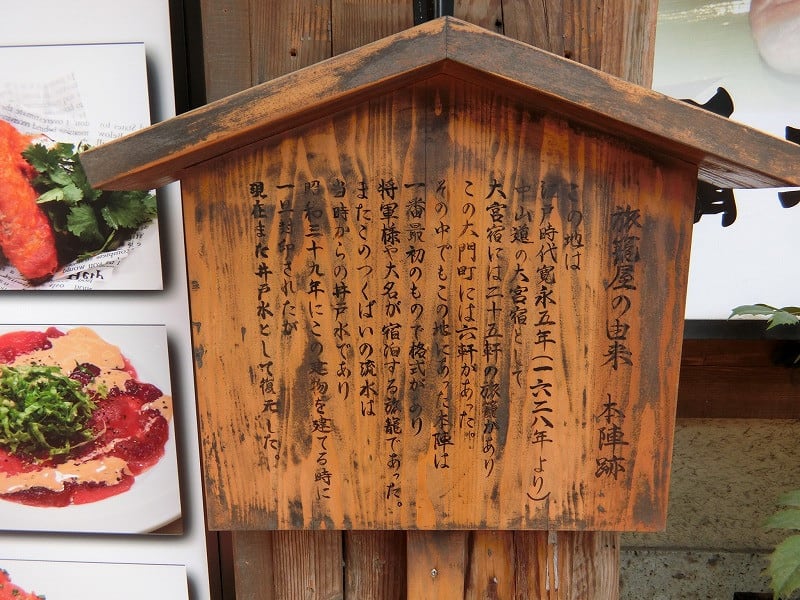 旅籠屋の由来 本陣跡
この地は
江戸時代寛永五年(一六二八年より)
中山道の大宮宿として
大宮宿には二十五軒の旅籠があり
この大門町には六軒があった。
その中でもこの地にあった本陣は
一番最初のもので格式があり
将軍様や大名が宿泊する旅籠であった。
またこのつくばいの流水は
当時からの井戸水であり
昭和三十九年にこの建物を建てる時に
一旦封印されたが
現在また井戸水として復元した。